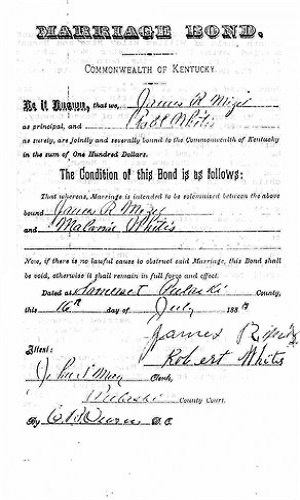 MARRIAGE BOND.
COMMONWEALTH OF KENTUCKY.
Be it Known, that we, James R Mize
as principal, and Robt Whitis
as surety, are jointly and severally bound to the Commonwealth of Kentucky
in the sum of One Hundred Dollars.
The Condition of this Bond is as follows:
That whereas, Marriage is intended to be solemnized between the above
bound James R Mize
and Malvinie Whitis
Now, if there is no lawful cause to obstruct said Marriage, this Bond shall
be void, otherwise it shall remain in full force and effect.
Dated at Somerset Pulaski County,
this 16th day of July 188
James R Mize
Attest: Robert Whitis
Clerk,
Pulaski County Court.
By D. C.